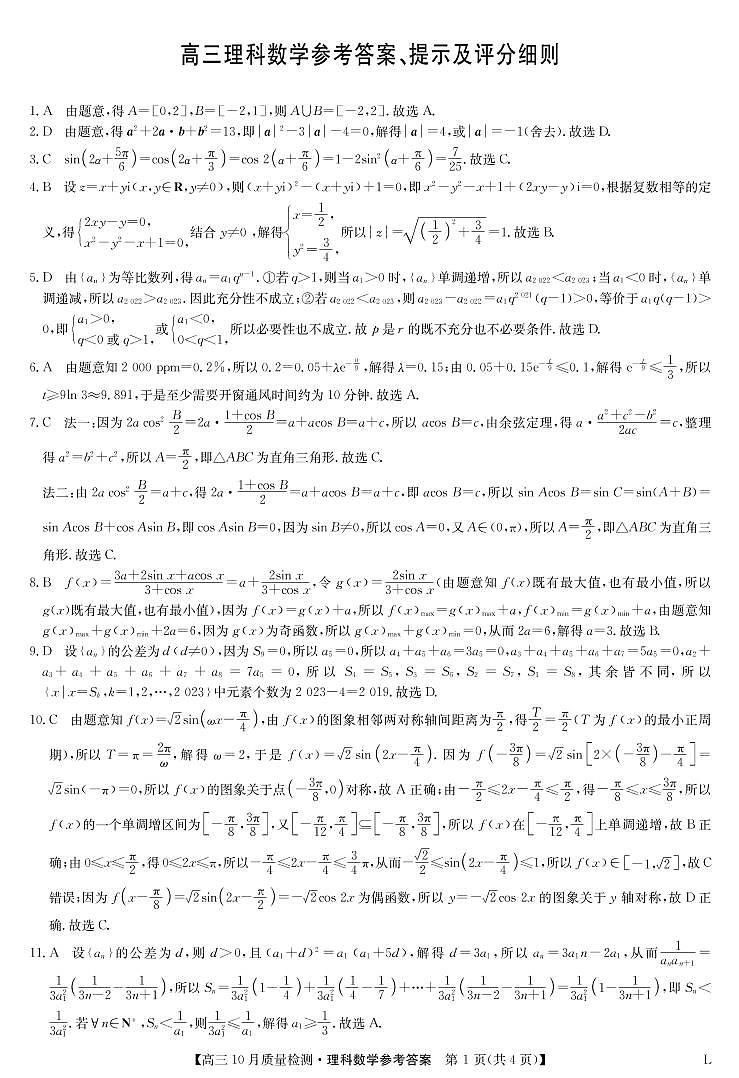 高三理科数学参考答案、提示及评分细则
1. A 由题意,得 A=[0,2],B=[-2,1],则 A∪B=[-2,2]. 故选 A.
2. D 由题意,得 a²+2a·b+b²=13,即|a|²-3|a|-4=0,解得|a|=4,或|a|=-1(舍去). 故选 D.
3. C sin(2α+5π/6)=cos(2α+π/3)=cos 2(α+π/6)=1-2sin²(α+π/6)=7/25. 故选 C.
4. B 设 z=x+yi(x,y∈R,y≠0),则(x+yi)²-(x+yi)+1=0,即 x²-y²-x+1+(2xy-y)i=0,根据复数相等的定
义,得{2xy-y=0, x²-y²-x+1=0, 结合 y≠0 ,解得{x=1/2, y²=3/4, 所以|z|=√((1/2)²+3/4)=1. 故选 B.
5. D 由{aₙ}为等比数列,得 aₙ=a₁qⁿ⁻¹. ①若 q>1,则当 a₁>0 时,{aₙ}单调递增,所以 a₂ ₀₂₂<a₂ ₀₂₃;当 a₁<0 时,{aₙ}单
调递减,所以 a₂ ₀₂₂>a₂ ₀₂₃. 因此充分性不成立;②若 a₂ ₀₂₂<a₂ ₀₂₃,则 a₂ ₀₂₃-a₂ ₀₂₂=a₁q² ⁰²¹(q-1)>0,等价于 a₁q(q-1)>
0,即{a₁>0, q<0 或 q>1, 或{a₁<0, 0<q<1, 所以必要性也不成立. 故 p 是 r 的既不充分也不必要条件. 故选 D.
6. A 由题意知 2 000 ppm=0.2%,所以 0.2=0.05+λe^(-0/9),解得 λ=0.15;由 0.05+0.15e^(-t/9)≤0.1,解得 e^(-t/9)≤1/3,所以
t≥9ln 3≈9.891,于是至少需要开窗通风时间约为 10 分钟. 故选 A.
7. C 法一:因为 2a cos² B/2=2a·(1+cos B)/2=a+acos B=a+c,所以 acos B=c,由余弦定理,得 a·(a²+c²-b²)/2ac=c,整理
得 a²=b²+c²,所以 A=π/2,即△ABC 为直角三角形. 故选 C.
法二:由 2a cos² B/2=a+c,得 2a·(1+cos B)/2=a+acos B=a+c,即 acos B=c,所以 sin Acos B=sin C=sin(A+B)=
sin Acos B+cos Asin B,即 cos Asin B=0,因为 sin B≠0,所以 cos A=0,又 A∈(0,π),所以 A=π/2,即△ABC 为直角三
角形. 故选 C.
8. B f(x)=(3a+2sin x+acos x)/(3+cos x)=a+2sin x/(3+cos x),令 g(x)=2sin x/(3+cos x)(由题意知 f(x)既有最大值,也有最小值,所以
g(x)既有最大值,也有最小值),因为 f(x)=g(x)+a,所以 f(x)max=g(x)max+a,f(x)min=g(x)min+a,由题意知
g(x)max+g(x)min+2a=6,因为 g(x)为奇函数,所以 g(x)max+g(x)min=0,从而 2a=6,解得 a=3. 故选 B.
9. D 设{aₙ}的公差为 d(d≠0),因为 S₉=0,所以 a₅=0,所以 a₄+a₅+a₆=3a₅=0,a₃+a₄+a₅+a₆+a₇=5a₅=0,a₂+
a₃+a₄+a₅+a₆+a₇+a₈=7a₅=0,所以 S₄=S₅,S₃=S₆,S₂=S₇,S₁=S₈,其余皆不同,所以
{x|x=Sₖ,k=1,2,…,2 023}中元素个数为 2 023-4=2 019. 故选 D.
10. C 由题意知 f(x)=√2sin(ωx-π/4),由 f(x)的图象相邻两对称轴间距离为π/2,得T/2=π/2(T 为 f(x)的最小正周
期),所以 T=π=2π/ω,解得 ω=2,于是 f(x)=√2 sin(2x-π/4). 因为 f(-3π/8)=√2 sin[2×(-3π/8)-π/4]=
√2sin(-π)=0,所以 f(x)的图象关于点(-3π/8,0)对称,故 A 正确;由-π/2≤2x-π/4≤π/2,得-π/8≤x≤3π/8,所以
f(x)的一个单调增区间为[-π/8,3π/8],又[-π/12,π/4]⊆[-π/8,3π/8],所以 f(x)在[-π/12,π/4]上单调递增,故 B 正
确;由 0≤x≤π/2,得 0≤2x≤π,所以-π/4≤2x-π/4≤3/4π,从而-√2/2≤sin(2x-π/4)≤1,所以 f(x)∈[-1,√2],故 C
错误;因为 f(x-π/8)=√2sin(2x-π/2)=-√2cos 2x 为偶函数,所以 y=-√2cos 2x 的图象关于 y 轴对称,故 D 正
确. 故选 C.
11. A 设{aₙ}的公差为 d,则 d>0,且(a₁+d)²=a₁(a₁+5d),解得 d=3a₁,所以 aₙ=3a₁n-2a₁,从而1/(aₙaₙ₊₁)=
1/3a₁²(1/(3n-2)-1/(3n+1)),所以 Sₙ=1/3a₁²(1-1/4)+1/3a₁²(1/4-1/7)+…+1/3a₁²(1/(3n-2)-1/(3n+1))=1/3a₁²(1-1/(3n+1)),即 Sₙ<
1/3a₁². 若∀n∈N*,Sₙ<1/a₁,则1/3a₁²≤1/a₁,解得 a₁≥1/3. 故选 A.
【高三 10 月质量检测·理科数学参考答案 第 1 页(共 4 页)】 L